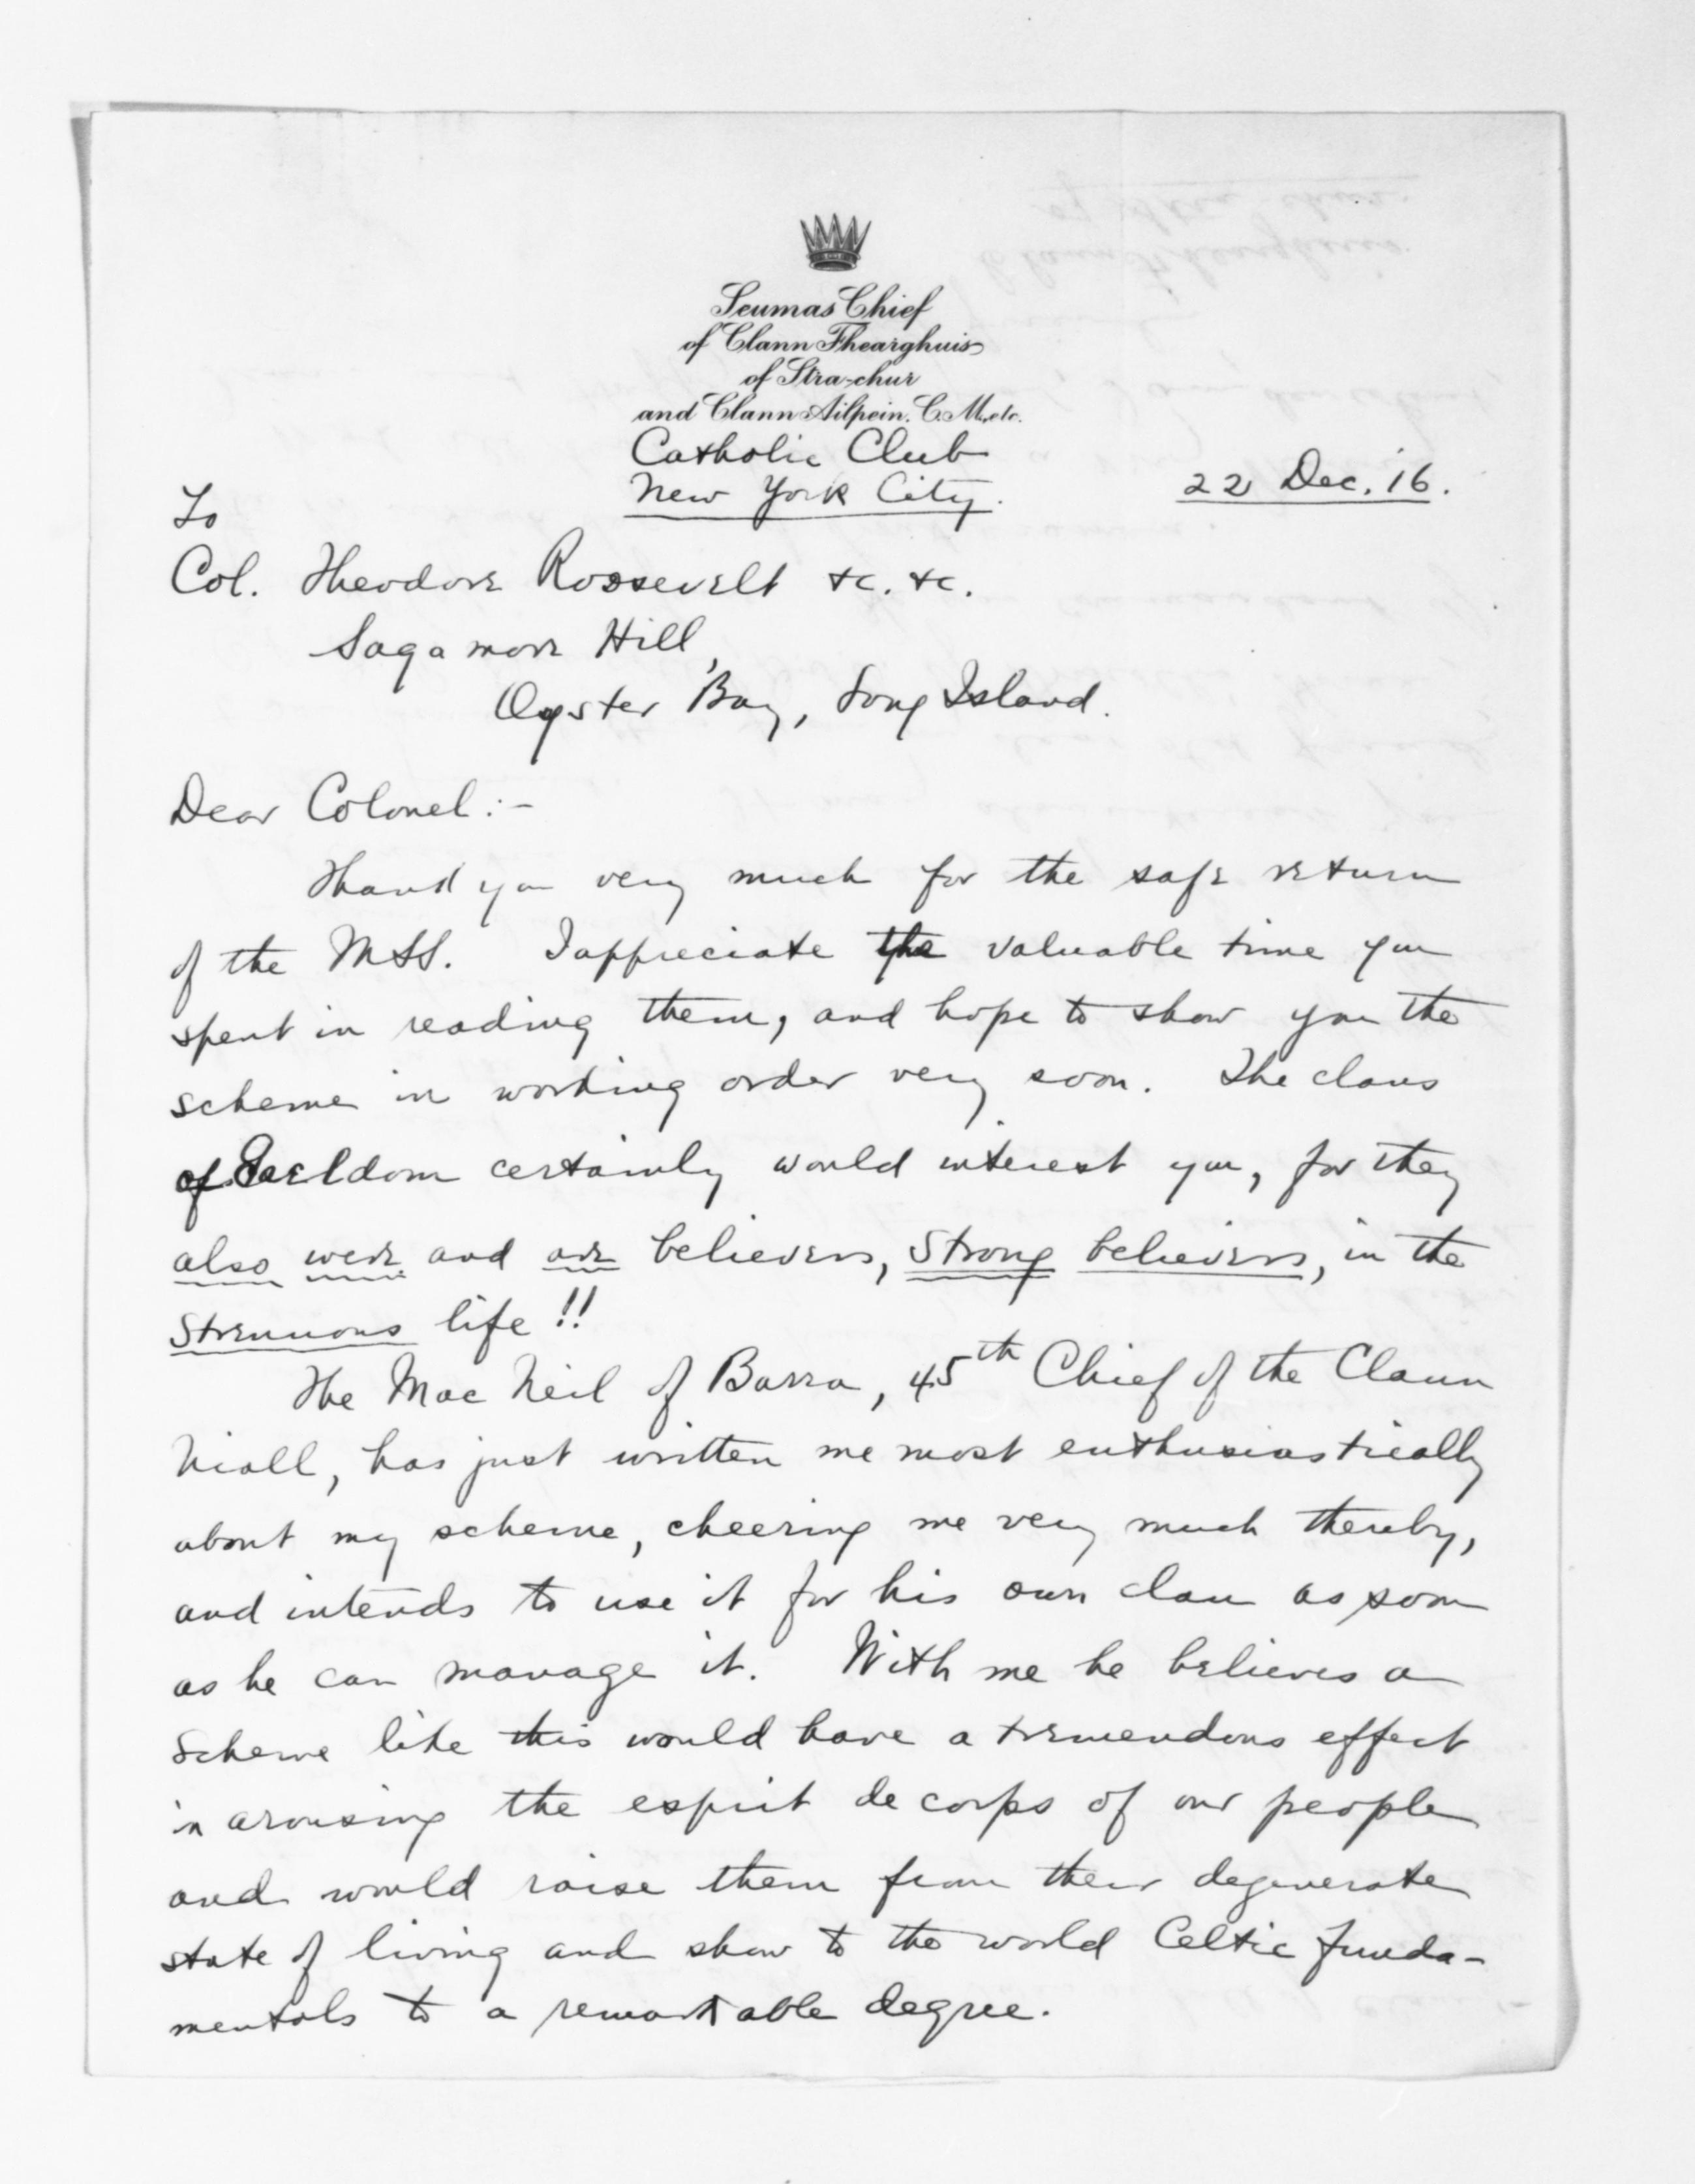 Seumas Chief
of Clann Fhearghuis
of Stra-chur
and Clann Ailpein. C.M., etc.
Catholic Club
New York City.
22 Dec. '16.
To
Col. Theodore Roosevelt &c. &c.
Sagamore Hill,
Oyster Bay, Long Island.
Dear Colonel:-
Thank you very much for the safe return
of the MSS. I appreciate the valuable time you
spent in reading them, and hope to show you the
scheme in working order very soon. The clans
of Gaeldom certainly would interest you, for they
also were and are believers, strong believers, in the
strenuous life!!
The Mac Neil of Barra, 45th Chief of the Clann
Niall, has just written me most enthusiastically
about my scheme, cheering me very much thereby,
and intends to use it for his own clan as soon
as he can manage it. With me he believes a
scheme like this would have a tremendous effect
in arousing the esprit de corps of our people
and would raise them from their degenerate
state of living and show to the world Celtic funda-
mentals to a remarkable degree.